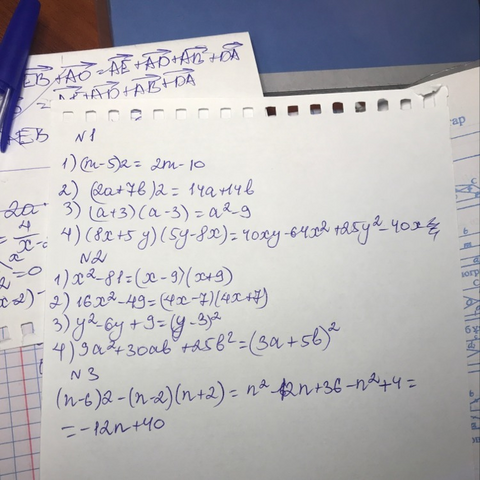 EB + AO = AE + AD + AB + DA
+ AD + AB + DA
EB
N1
1) (m-5)2 = 2m-10
2) (2a+7b)2 = 14a+14b
3) (a+3)(a-3) = a²-9
4) (8x+5y)(5y-8x) = 40xy-64x²+25y²-40x
N2
1) x²-81 = (x-9)(x+9)
2) 16x²-49 = (4x-7)(4x+7)
3) y²-6y+9 = (y-3)²
4) 9a²+30ab+25b² = (3a+5b)²
N3
(n-6)2-(n-2)(n+2) = n²-12n+36-n²+4 =
= -12n+40